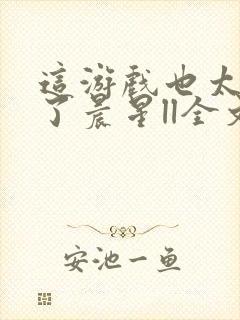 這游戲也太
了晨星||全文
安池一鱼